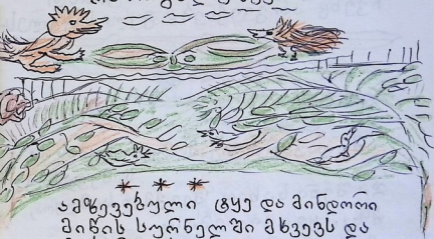 * * *
ამზევებული ტყე და მინდორი
მიწის სურნელში მხვევს და